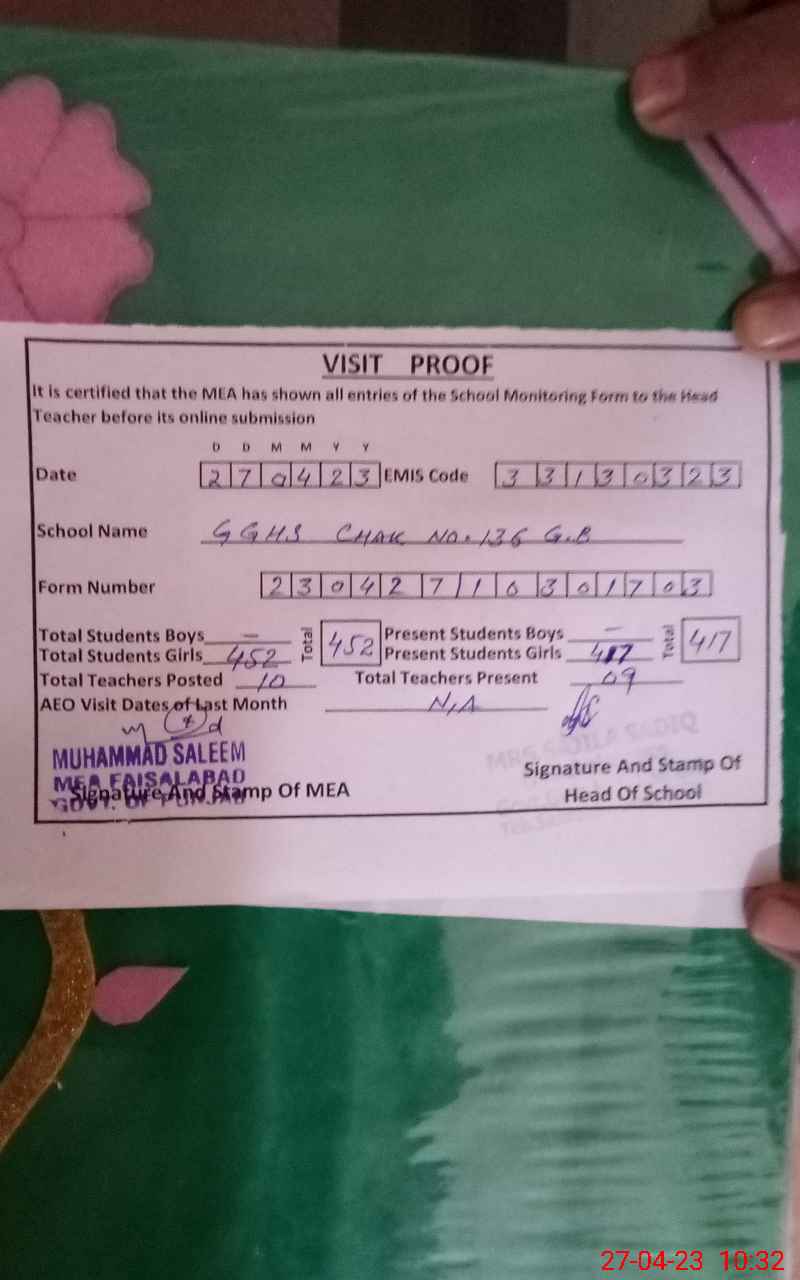 VISIT PROOF
It is certified that the MEA has shown all entries of the School Monitoring Form to the Head
Teacher before its online submission
D D M M Y Y
Date 270423 EMIS Code 33130323
School Name GGHS CHAK NO. 136 G.B
Form Number 23042710301703
Total Students Boys — Total 452 Present Students Boys — Total 417
Total Students Girls 452 Present Students Girls 417
Total Teachers Posted 10 Total Teachers Present 09
AEO Visit Dates of Last Month N/A
MUHAMMAD SALEEM
MEA FAISALABAD
GOVT. OF PUNJAB
Signature And Stamp Of MEA
Signature And Stamp Of
Head Of School
27-04-23 10:32